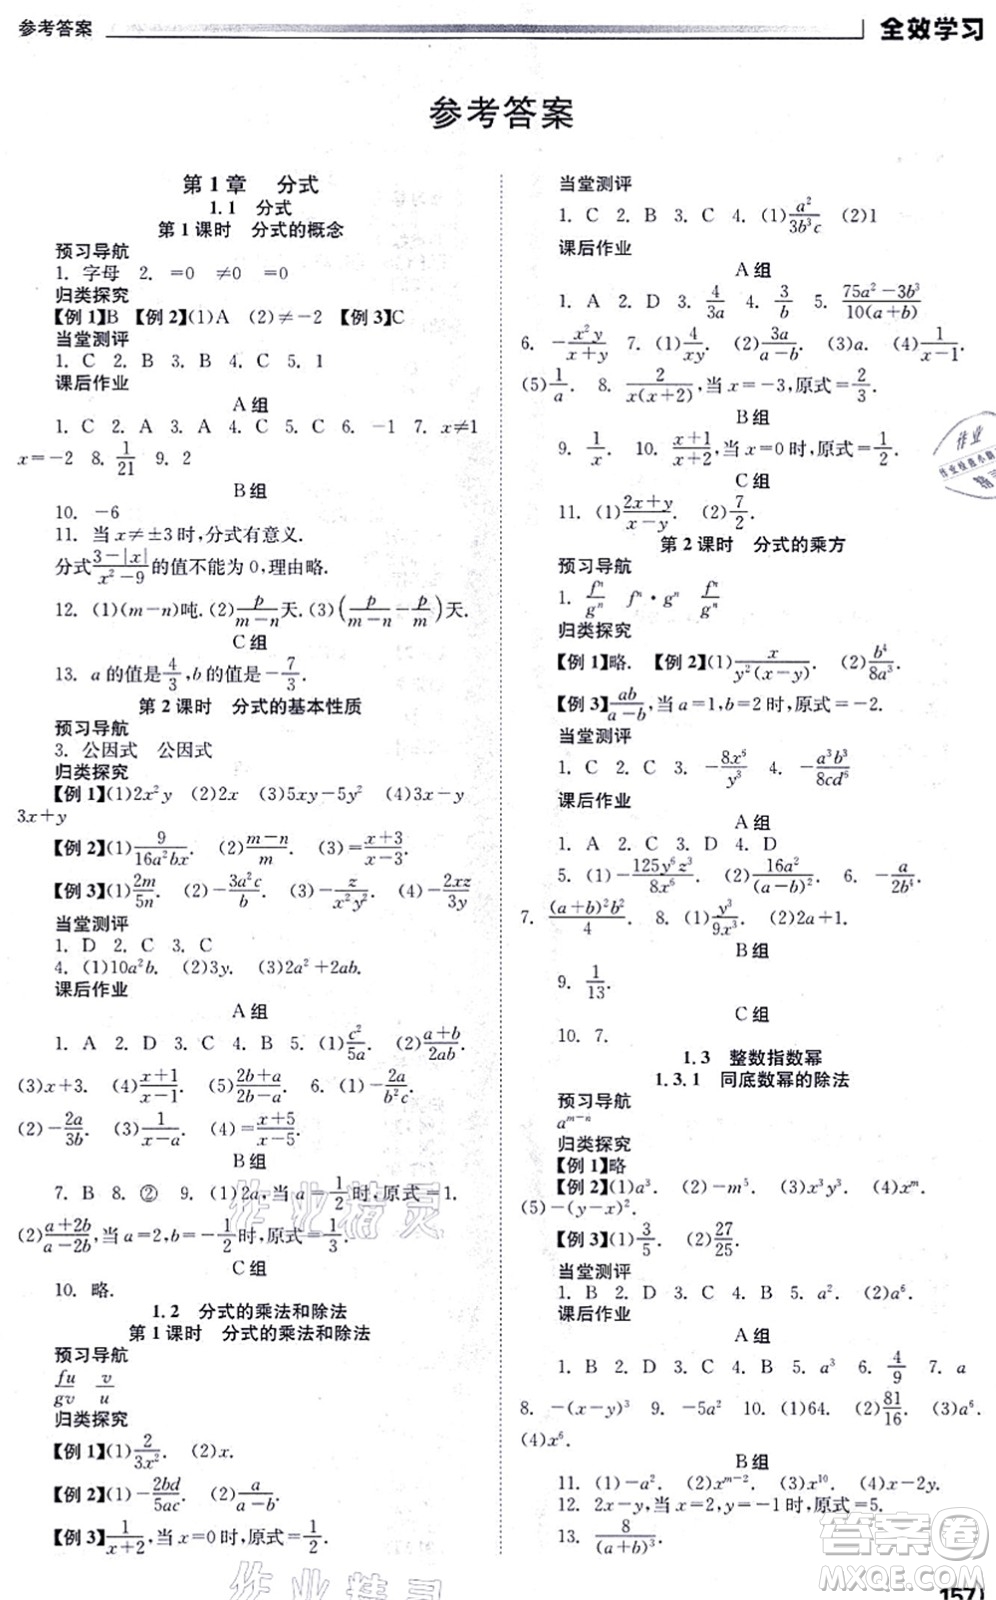 参考答案
全效学习
参考答案
第1章 分式
1.1 分式
第1课时 分式的概念
预习导航
1. 字母 2. =0 ≠0 =0
归类探究
【例1】B 【例2】(1)A (2)≠-2 【例3】C
当堂测评
1. C 2. B 3. C 4. C 5. 1
课后作业
A组
1. C 2. A 3. A 4. C 5. C 6. -1 7. x≠1
x=-2 8. 1/21 9. 2
B组
10. -6
11. 当x≠±3时,分式有意义.
分式(3-|x|)/(x²-9)的值不能为0,理由略.
12. (1)(m-n)吨. (2)p/(m-n)天. (3)(p/(m-n)-p/m)天.
C组
13. a的值是4/3,b的值是-7/3.
第2课时 分式的基本性质
预习导航
3. 公因式 公因式
归类探究
【例1】(1)2x²y (2)2x (3)5xy-5y² (4)3x-y
3x+y
【例2】(1)9/(16a²bx). (2)(m-n)/m. (3)(x+3)/(x-3).
【例3】(1)2m/5n. (2)-3a²c/b (3)-z/(x²y²). (4)-2xz/3y
当堂测评
1. D 2. C 3. C
4. (1)10a²b. (2)3y. (3)2a²+2ab.
课后作业
A组
1. A 2. D 3. C 4. B 5. (1)c²/5a. (2)(a+b)/2ab.
(3)x+3. (4)(x+1)/(x-1). (5)(2b+a)/(2b-a). 6. (1)-2a/(b²c).
(2)-2a/3b. (3)1/(x-a). (4)(x+5)/(x-5).
B组
7. B 8. ② 9. (1)2a,当a=1/2时,原式=1.
(2)(a+2b)/(a-2b),当a=2,b=-1/2时,原式=1/3.
C组
10. 略.
1.2 分式的乘法和除法
第1课时 分式的乘法和除法
预习导航
fu/gv v/u
归类探究
【例1】(1)2/(3x²). (2)x.
【例2】(1)-2bd/5ac. (2)a/(a-b).
【例3】1/(x+2),当x=0时,原式=1/2.
当堂测评
1. C 2. B 3. C 4. (1)a²/(3b³c) (2)1
课后作业
A组
1. A 2. D 3. 4/3a 4. 3/b 5. (75a²-3b³)/(10(a+b))
6. -x²y/(x+y) 7. (1)4/xy. (2)3a/(a-b). (3)a. (4)1/(x-1).
(5)1/a. 8. 2/(x(x+2)),当x=-3,原式=2/3.
B组
9. 1/x 10. (x+1)/(x+2),当x=0时,原式=1/2.
C组
11. (1)(2x+y)/(x-y). (2)7/2.
第2课时 分式的乘方
预习导航
1. fⁿ/gⁿ fⁿ·gⁿ fⁿ/gⁿ
归类探究
【例1】略. 【例2】(1)x/(y²(x-y)). (2)b⁴/(8a³).
【例3】ab/(a-b),当a=1,b=2时,原式=-2.
当堂测评
1. C 2. C 3. -8x⁶/y³ 4. -a³b³/(8cd⁶)
课后作业
A组
1. A 2. C 3. D 4. D
5. (1)-125y⁶z³/(8x⁶). (2)16a²/(a-b)². 6. -a/(2b⁴)
7. (a+b)²b²/4 8. (1)y³/(9x³). (2)2a+1.
B组
9. 1/13.
C组
10. 7.
1.3 整数指数幂
1.3.1 同底数幂的除法
预习导航
aᵐ⁻ⁿ
归类探究
【例1】略
【例2】(1)a³. (2)-m⁵. (3)x³y³. (4)xᵐ.
(5)-(y-x)².
【例3】(1)3/5. (2)27/25.
当堂测评
1. B 2. D 3. C 4. B 5. a². (2)a⁶.
课后作业
A组
1. B 2. D 3. C 4. B 5. a³ 6. 4/9 7. a
8. -(x-y)³ 9. -5a² 10. (1)64. (2)81/16. (3)a⁶.
(4)x⁶.
B组
11. (1)-a². (2)xᵐ⁻². (3)x¹⁰. (4)-2y.
12. 2x-y,当x=2,y=-1时,原式=5.
13. 8/(a+b)³.
157
作业精灵
作业精灵
答案圈
MXQE.COM
作业